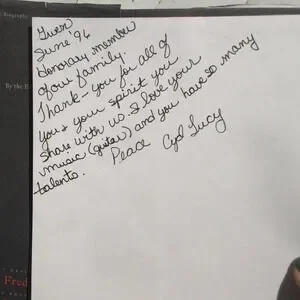 Gwen
June '96
Honorary member
of our family.
Thank you for all of
you & your spirit you
share with us. I love your
music (guitar) and you have so many
talents.
Peace Cyd Lucy
Biography
By the
Fred